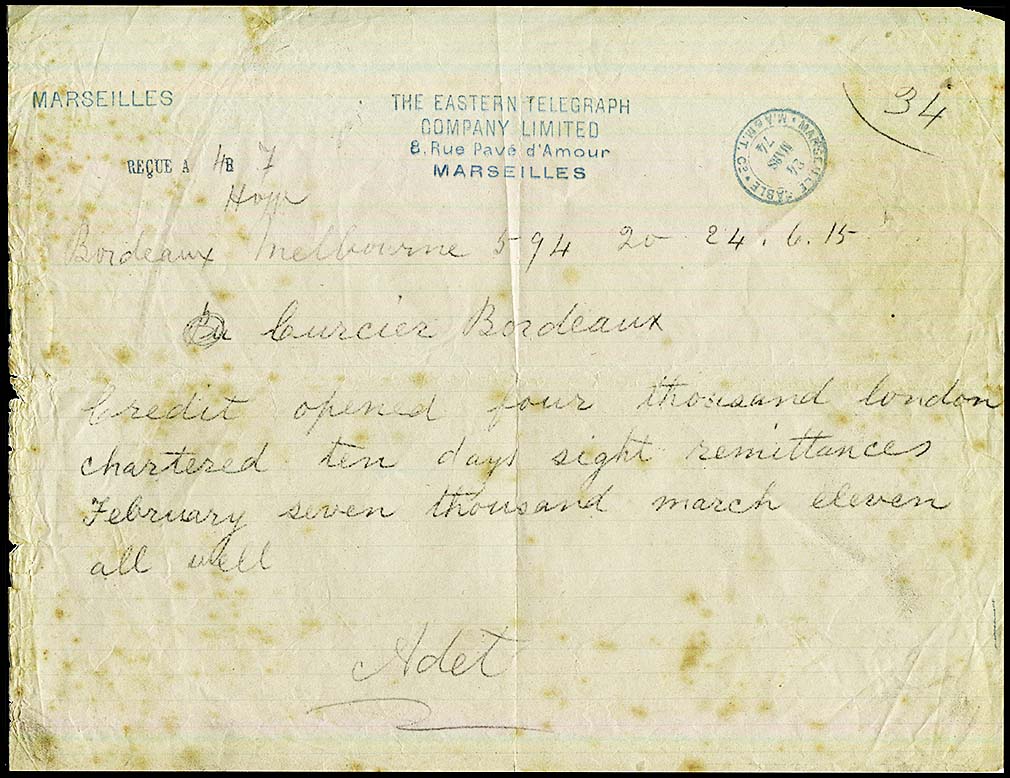 MARSEILLES
THE EASTERN TELEGRAPH
COMPANY LIMITED
8, Rue Pavé d'Amour
MARSEILLES
34
MARSEILLE CABLE • M.A & M.T. Co •
24
MARS
74
REÇUE A 4 H 7
Bordeaux Melbourne 594 20 24.6.15
Curcier Bordeaux
Credit opened four thousand london
chartered ten days sight remittances
February seven thousand march eleven
all well
Adet